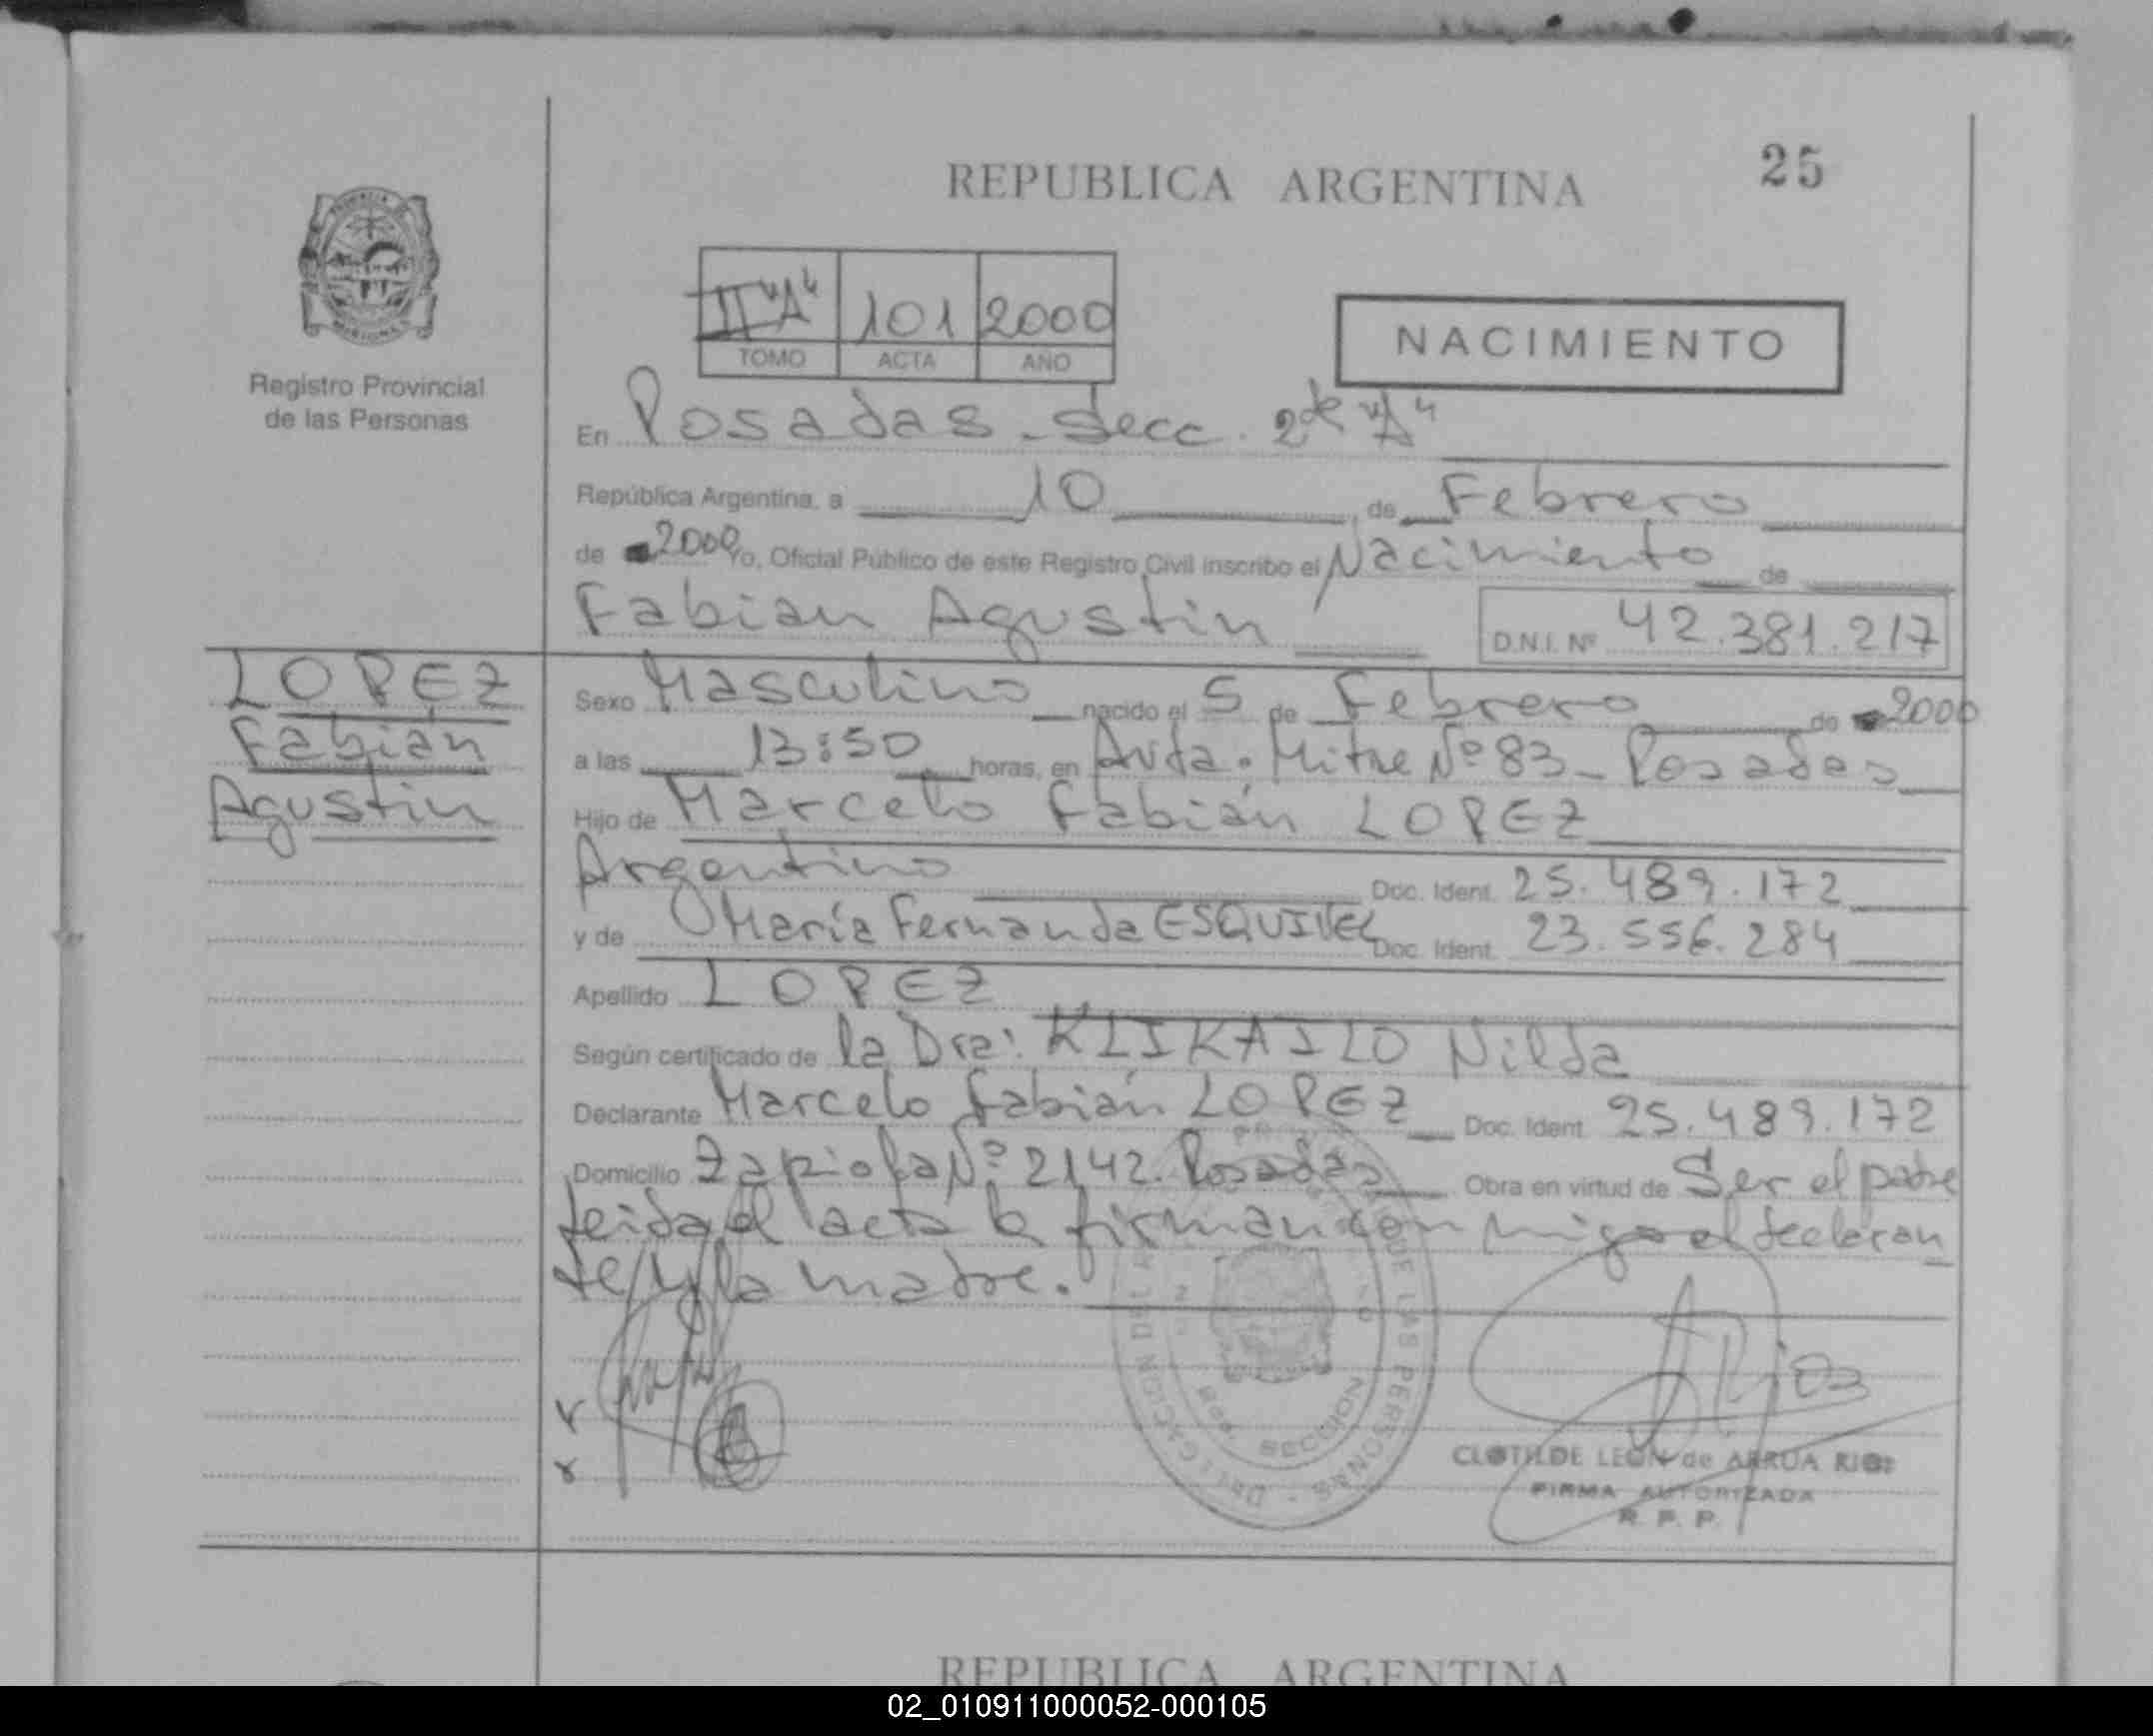 REPUBLICA ARGENTINA
25
II "A" 101 2000
TOMO ACTA AÑO
NACIMIENTO
Registro Provincial
de las Personas
En Posadas - Secc. 2da "A"
República Argentina, a 10 de Febrero
de 2000 Yo, Oficial Público de este Registro Civil inscribo el Nacimiento de
Fabian Agustin
D.N.I. Nº 42.381.217
LOPEZ
Fabián
Agustin
Sexo Masculino nacido el 5 de Febrero de 2000
a las 13:50 horas, en Avda. Mitre Nº 83 - Posadas
Hijo de Marcelo Fabián LOPEZ
Argentino Doc. Ident. 25.489.172
y de María Fernanda ESQUIVEL Doc. Ident. 23.556.284
Apellido LOPEZ
Según certificado de la Dra: KLIKAILO Nilda
Declarante Marcelo Fabián LOPEZ Doc. Ident. 25.489.172
Domicilio Zapiola Nº 2142. Posadas Obra en virtud de Ser el padre
leida el acta la firman con migo el declaran
te y la madre.
DE LAS PERSONAS - DELEGACION
SECCION
ARios
CLOTILDE LEON de ARRUA RIOS
FIRMA AUTORIZADA
R. P. P.
REPUBLICA ARGENTINA
02_010911000052-000105